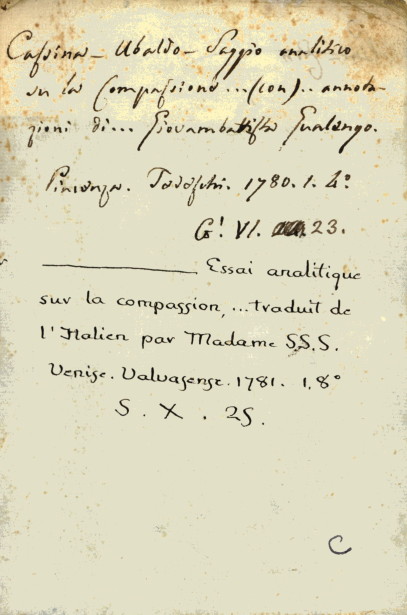 Cassina - Ubaldo - Saggio analitico
su la Compassione ... (con) .. annota-
zioni di ... Giovambatista Gualengo.
Piacenza. Tedeschi. 1780. 1. 4.º
G! VI. 23.
———— Essai analitique
sur la compassion, ... traduit de
l'Italien par Madame S.S.S.
Venise. Valvasense. 1781. 1. 8º
S. X. 25.
C